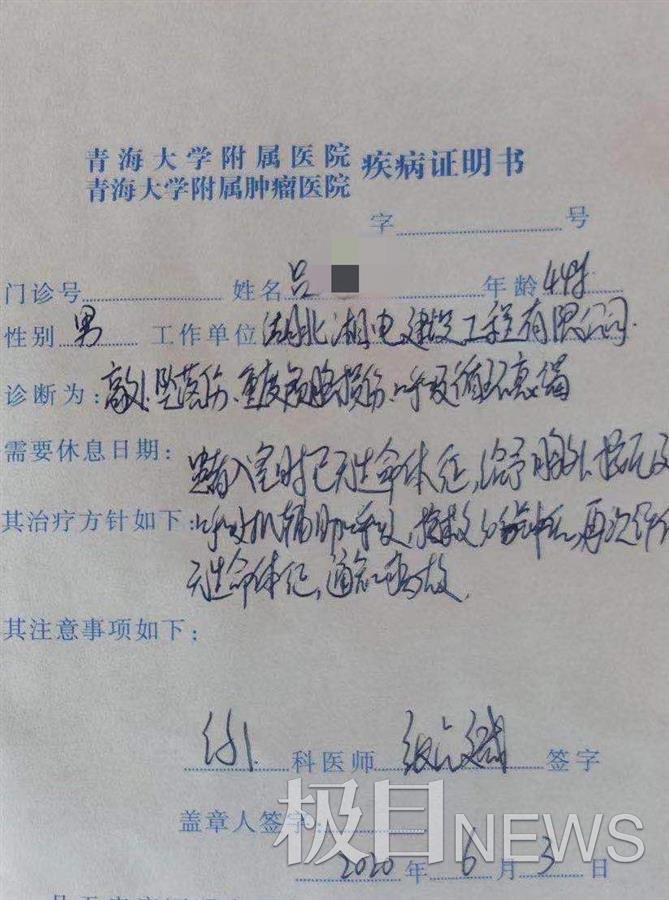 青海大学附属医院
青海大学附属肿瘤医院 疾病证明书
字 号
门诊号 姓名 吕 年龄 44岁
性别 男 工作单位 湖北湘电建设工程有限公司
诊断为:高处坠落伤.重度颅脑损伤.呼吸循环衰竭
需要休息日期:
患者入室时已无生命体征,给予胸外按压及
其治疗方针如下:呼吸机辅助呼吸,抢救 分钟后,再次评估
无生命体征,通知 故
其注意事项如下:
科医师 签字
盖章人签字:
2020年6月3日
极目NEWS